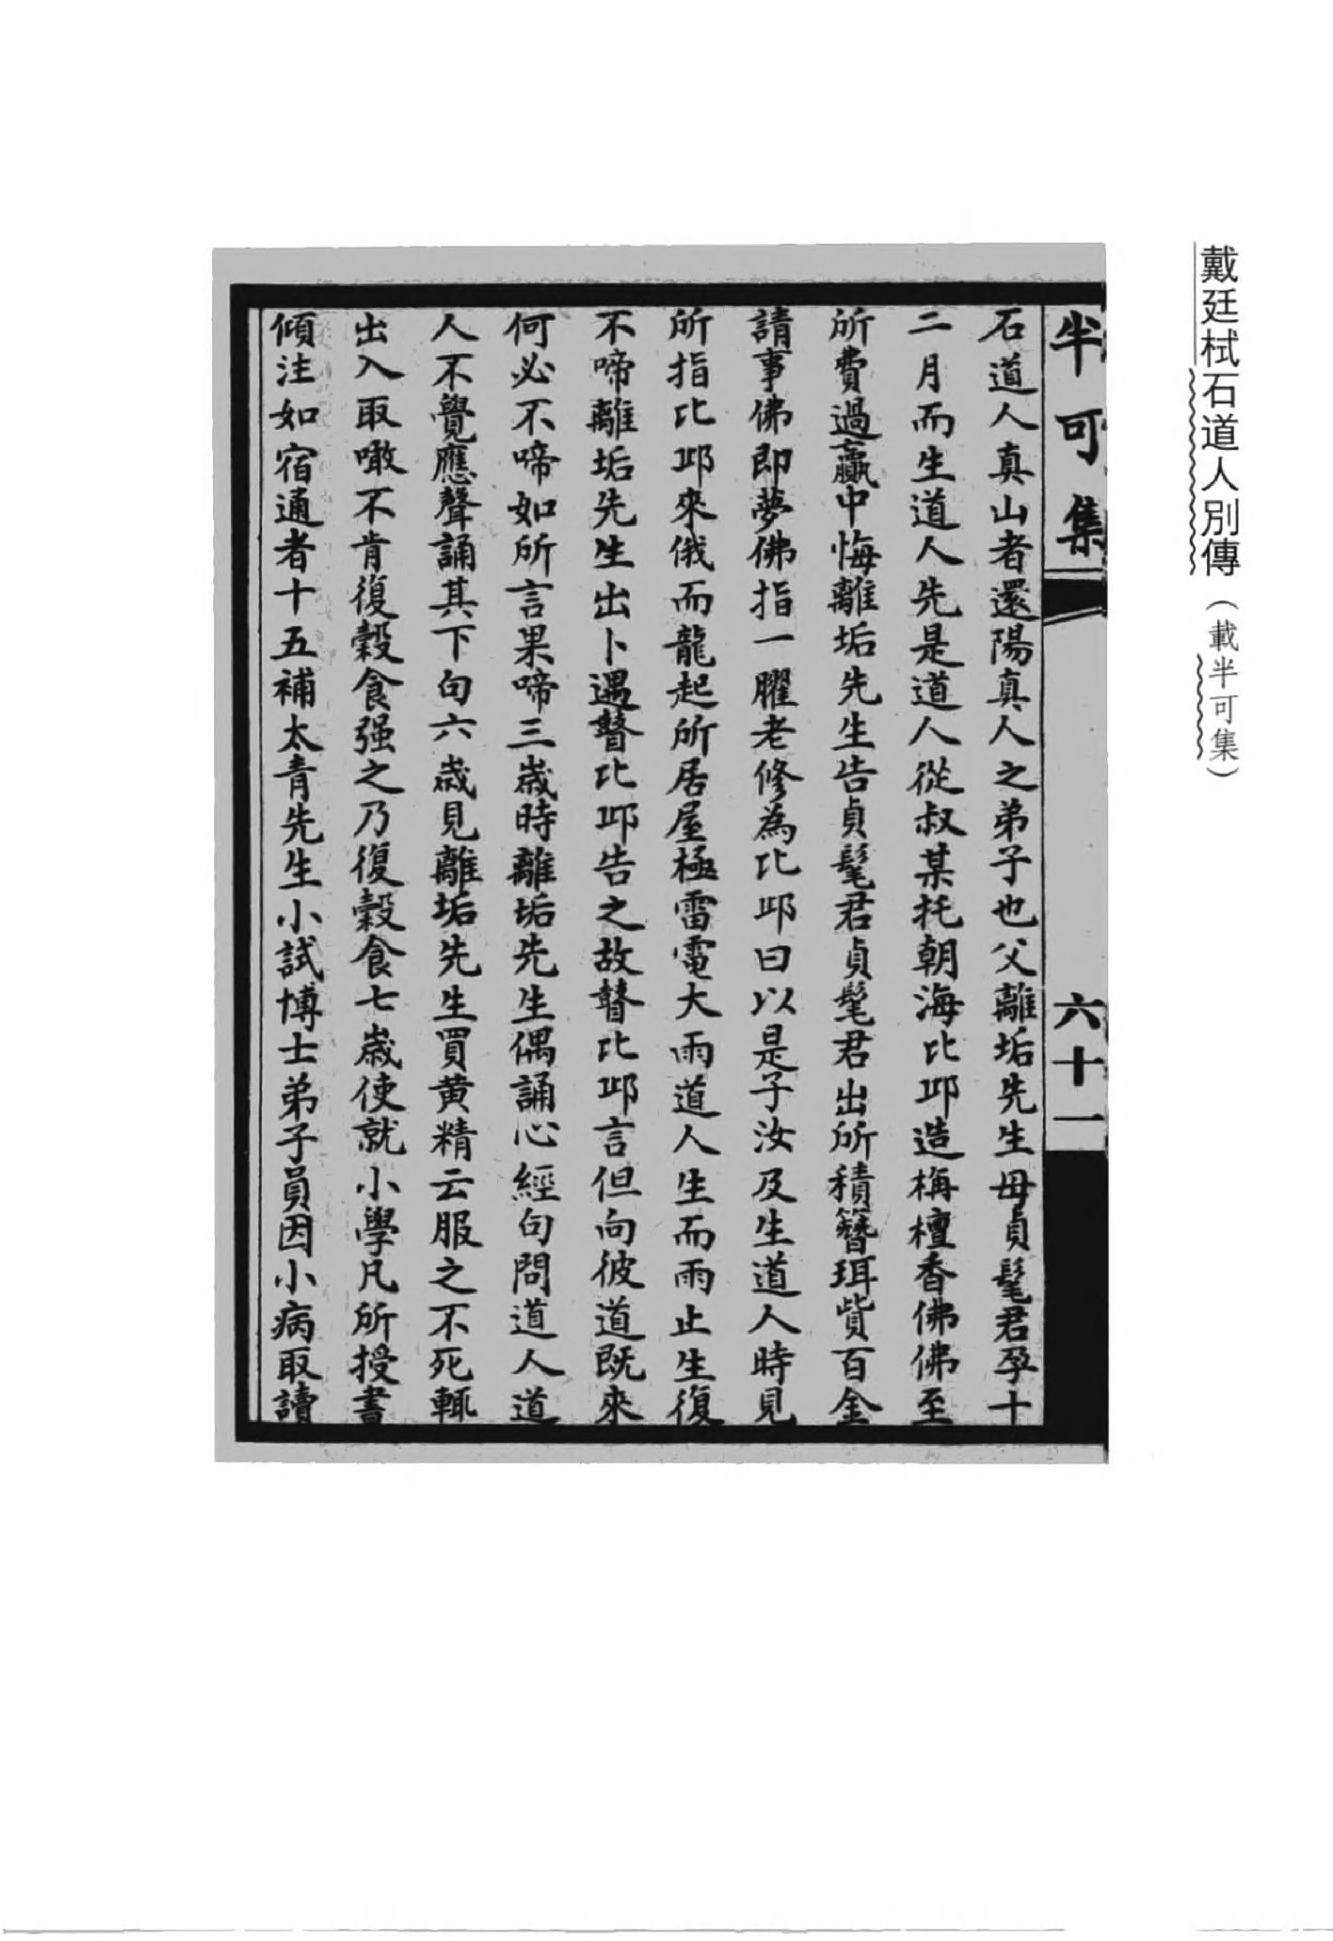 戴廷栻石道人別傳（載半可集）
半可集 六十一
石道人真山者還陽真人之弟子也父離垢先生母貞髦君孕十
二月而生道人先是道人從叔某托朝海比邱造栴檀香佛佛至
所費過贏中悔離垢先生告貞髦君貞髦君出所積簪珥貲百金
請事佛即夢佛指一臞老修為比邱曰以是子汝及生道人時見
所指比邱來俄而龍起所居屋極雷電大雨道人生而雨止生復
不啼離垢先生出卜遇瞽比邱告之故瞽比邱言但向彼道既來
何必不啼如所言果啼三歲時離垢先生偶誦心經句問道人道
人不覺應聲誦其下句六歲見離垢先生買黄精云服之不死輒
出入取噉不肯復穀食强之乃復穀食七歲使就小學凡所授書
傾注如宿通者十五補太青先生小試博士弟子員因小病取讀